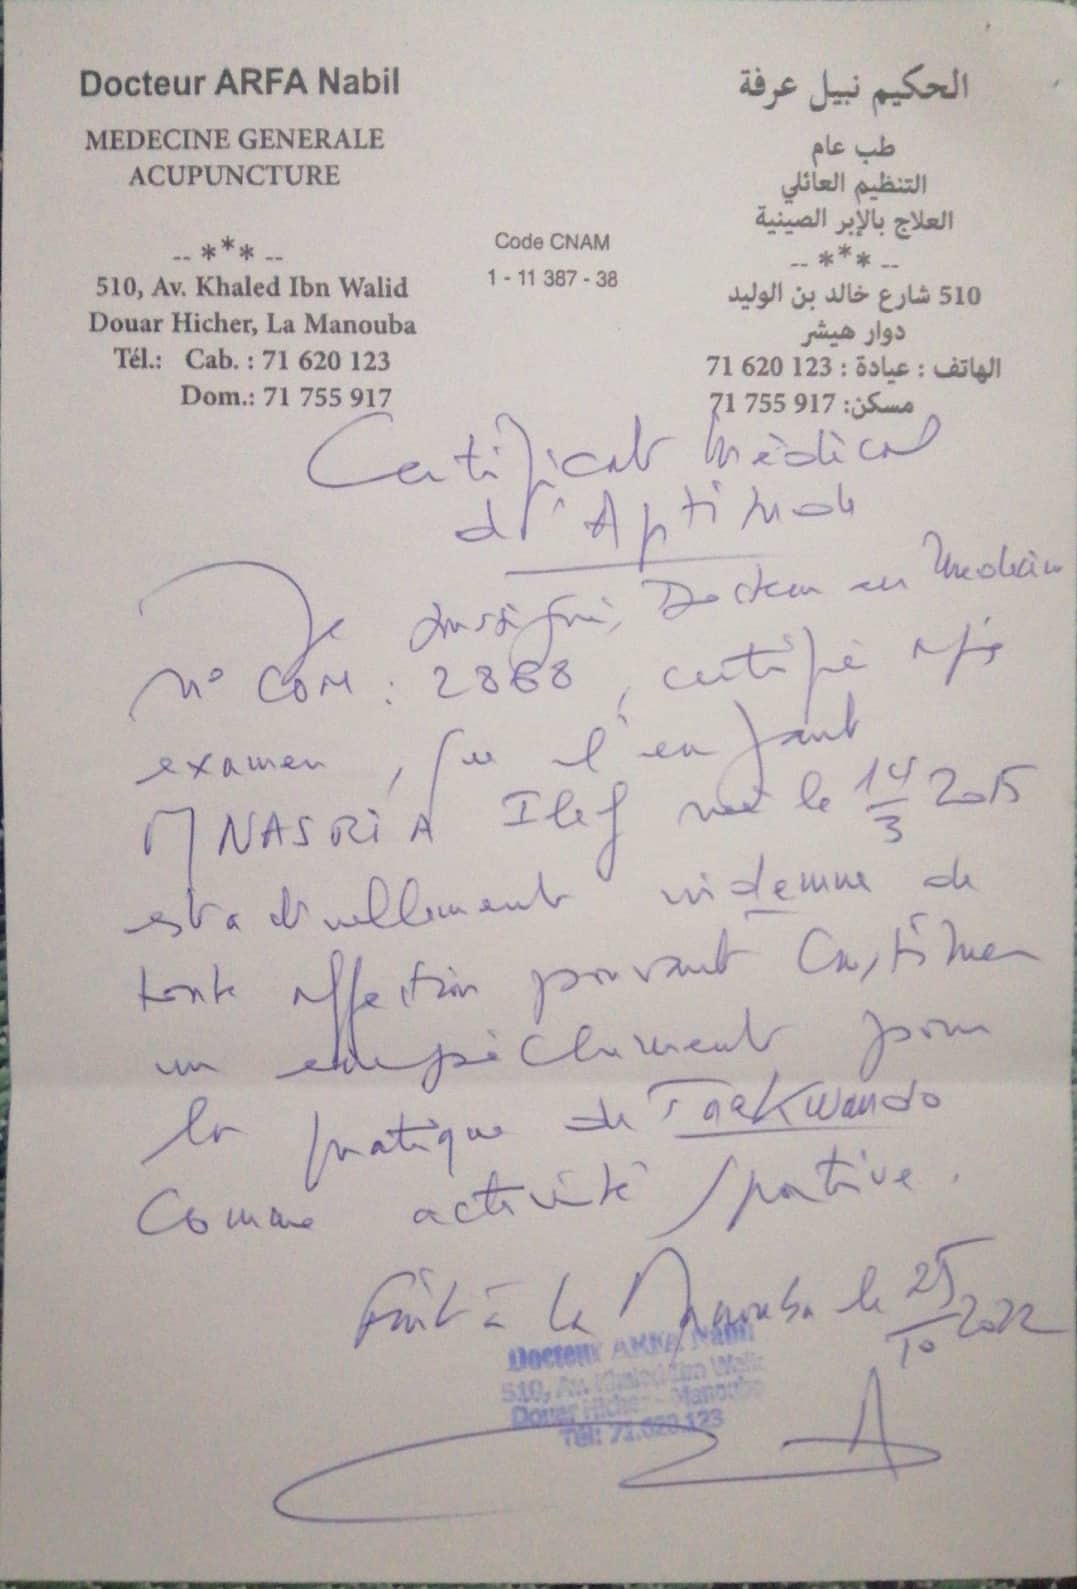 Docteur ARFA Nabil
MEDECINE GENERALE
ACUPUNCTURE
-- *** --
510, Av. Khaled Ibn Walid
Douar Hicher, La Manouba
Tél.: Cab. : 71 620 123
Dom.: 71 755 917
Code CNAM
1 - 11 387 - 38
الحكيم نبيل عرفة
طب عام
التنظيم العائلي
العلاج بالإبر الصينية
-- *** --
510 شارع خالد بن الوليد
دوار هيشر
الهاتف : عيادة : 123 620 71
مسكن: 917 755 71
Certificat médical
d'Aptitude
Je soussigné, Docteur en Médecine
n° COM : 2868, certifie après
examen, que l'enfant
MNASRIA Ilef née le 14/3 2015
est actuellement indemne de
toute affection pouvant constituer
un empêchement pour
la pratique de Taekwando
Comme activité sportive.
Fait à La Manouba le 25/10 2022
Docteur ARFA Nabil
510, Av. Khaled Ibn Walid
Douar Hicher - Manouba
Tél: 71.620.123